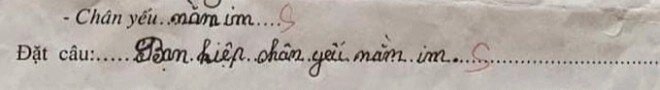 - Chân yếu..nằm im....S
Đặt câu:..... Bạn hiệp chân yếu nằm im...S...............